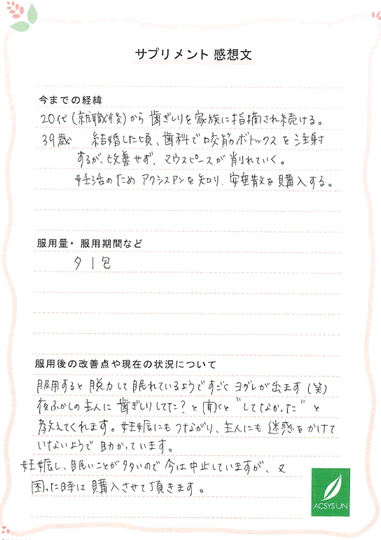 サプリメント 感想文
今までの経緯
20代(就職後)から歯ぎしりを家族に指摘され続ける。
39歳 結婚した頃、歯科で咬筋ボトックスを注射
するが、改善せず、マウスピースが削れていく。
妊活のためアクシスアンを知り、安亜散を購入する。
服用量・服用期間など
夕1包
服用後の改善点や現在の状況について
服用すると脱力して眠れているようですごくヨダレが出ます(笑)
夜ふかしの主人に歯ぎしりしてた?と聞くと"してなかった"と
教えてくれます。妊娠にもつながり、主人にも迷惑をかけて
いないようで助かっています。
妊娠し、眠いことが多いので今は中止していますが、又
困った時は購入させて頂きます。
ACSYS UN